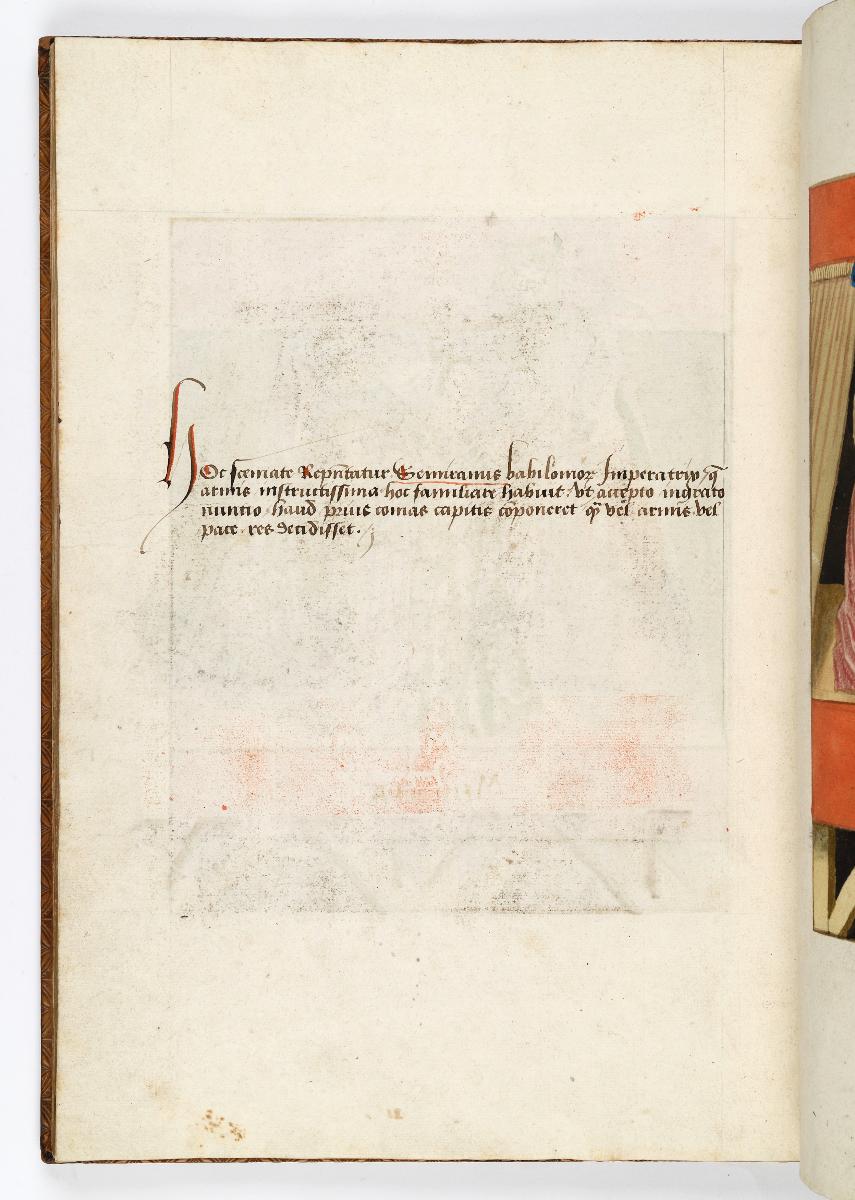 HOc scemate Rep̄ntatur Semiramis babilonioꝝ Imperatrix, q̄
armis instructissima hoc familiare habuit, vt accepto ingrato
nuntio haud prius comas capitis cōponeret qͣ̄ vel armis vel
pace res decidisset.